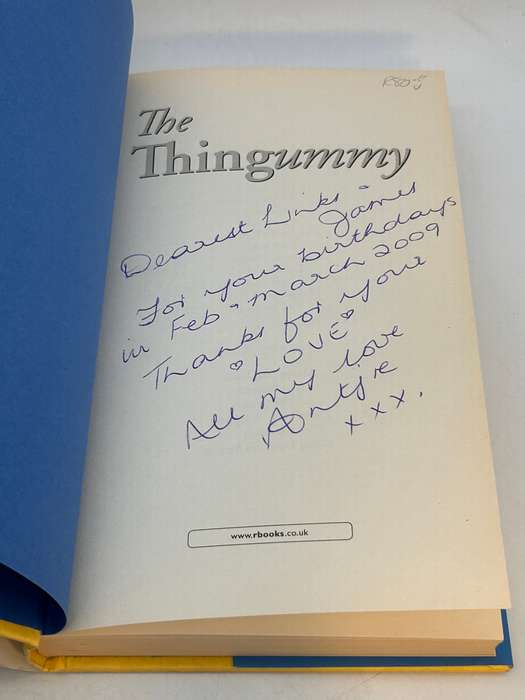 R80
The
Thingummy
Dearest Links +
James
For your birthdays
in Feb + March 2009
Thanks for your
♡LOVE♡
All my love
Antjie
xxx.
www.rbooks.co.uk